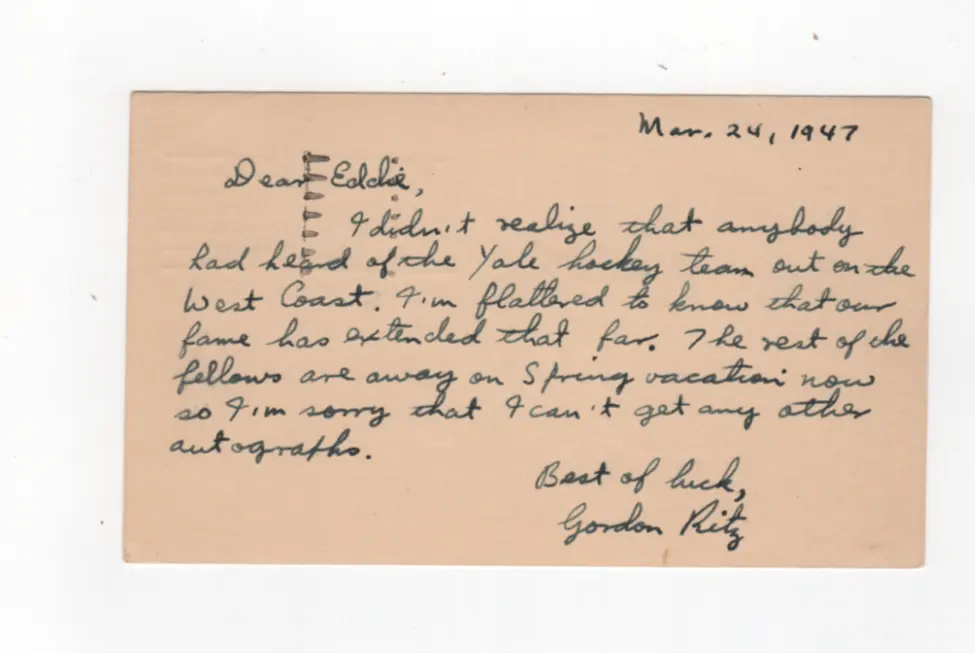 Mar. 24, 1947
Dear Eddie,
I didn't realize that anybody
had heard of the Yale hockey team out on the
West Coast. I'm flattered to know that our
fame has extended that far. The rest of the
fellows are away on Spring vacation now
so I'm sorry that I can't get any other
autographs.
Best of luck,
Gordon Ritz